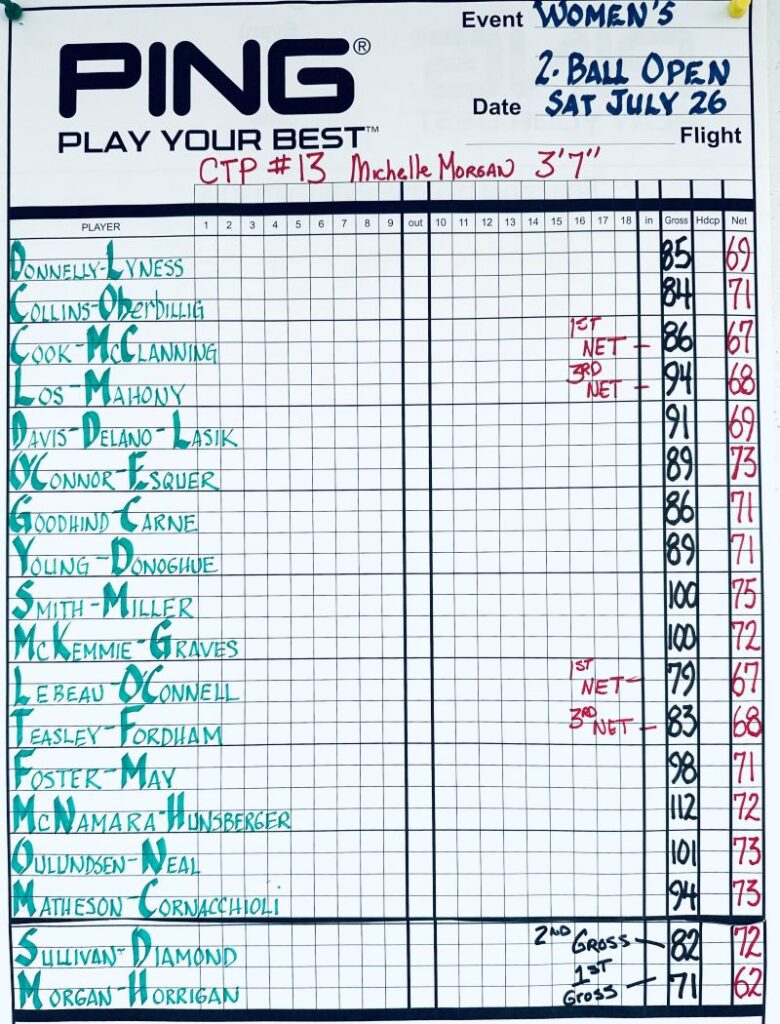 Event WOMEN'S
PING®
2-BALL OPEN
Date SAT JULY 26
PLAY YOUR BEST™
Flight
CTP #13 Michelle Morgan 3'7"
PLAYER 1 2 3 4 5 6 7 8 9 out 10 11 12 13 14 15 16 17 18 in Gross Hdcp Net
DONNELLY-LYNESS 85 69
COLLINS-OberbilliG 84 71
COOK-McCLANNING 1ST NET - 86 67
LOS-MAHONY 3RD NET - 94 68
DAVIS-DELANO-LASIK 91 69
O'CONNOR-ESQUER 89 73
GOODHIND-CARNE 86 71
YOUNG-DONOGHUE 89 71
SMITH-MILLER 100 75
McKEMMIE-GRAVES 100 72
LEBEAU-O'CONNELL 1ST NET - 79 67
TEASLEY-FORDHAM 3RD NET - 83 68
FOSTER-MAY 98 71
McNAMARA-HUNSBERGER 112 72
OULUNDSEN-NEAL 101 73
MATHESON-CORNACCHIOLI 94 73
SULLIVAN-DIAMOND 2ND GROSS - 82 72
MORGAN-HORRIGAN 1ST GROSS - 71 62